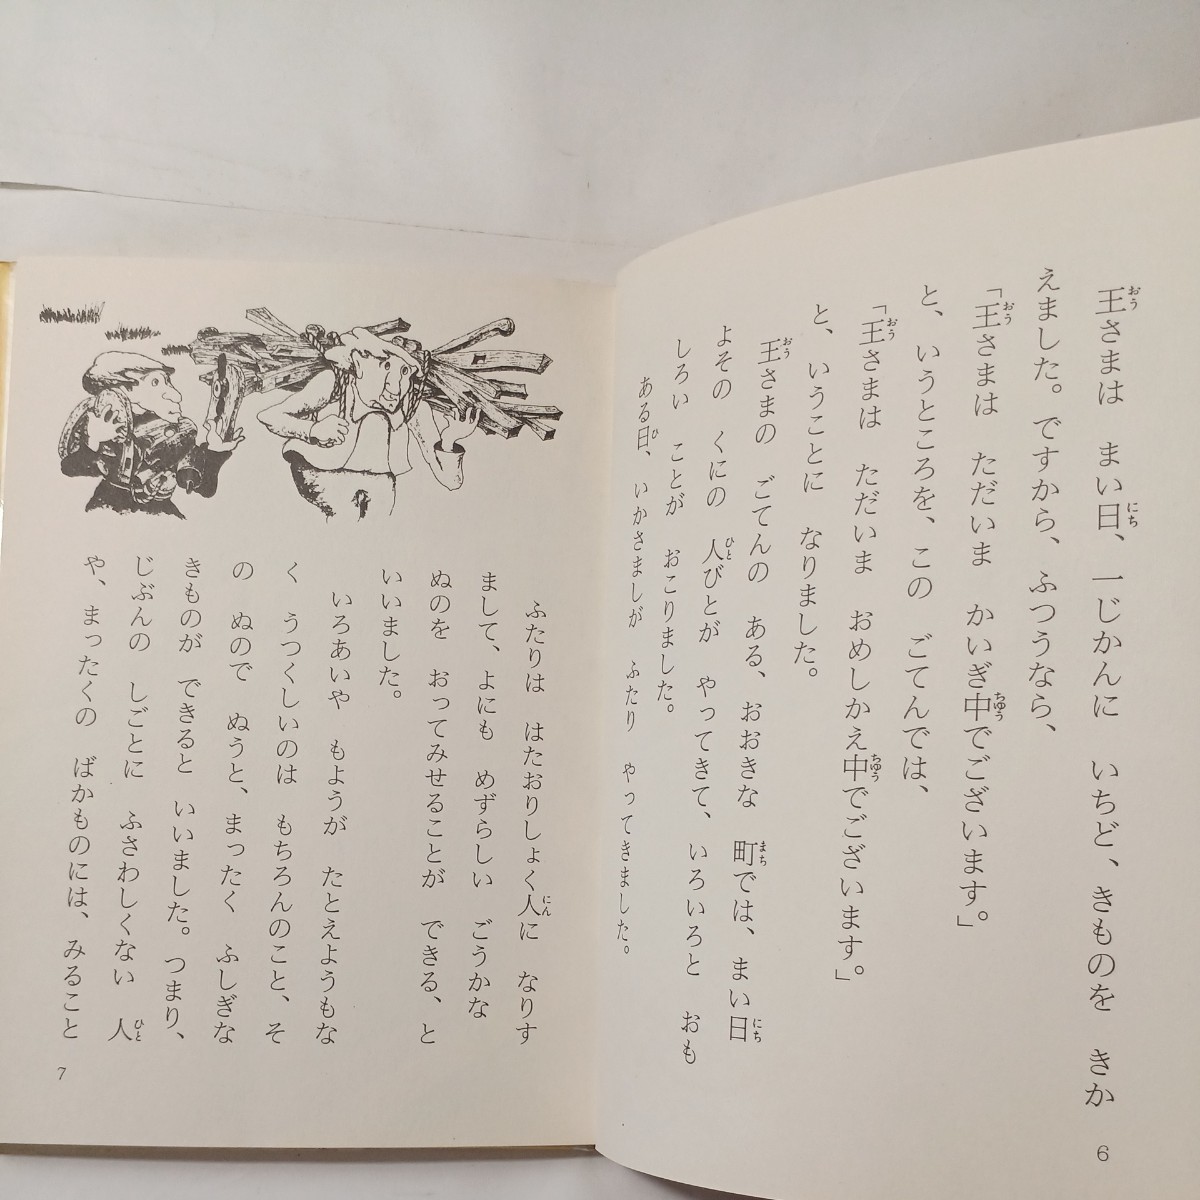 王さまは　まい日、一じかんに　いちど、きものを　きか
えました。ですから、ふつうなら、
「王さまは　ただいま　かいぎ中でございます。」
と、いうところを、この　ごてんでは、
「王さまは　ただいま　おめしかえ中でございます。」
と、いうことに　なりました。
王さまの　ごてんの　ある、おおきな　町では、まい日
よその　くにの　人びとが　やってきて、いろいろと　おも
しろい　ことが　おこりました。
ある日、いかさましが　ふたり　やってきました。
6
ふたりは　はたおりしょく人に　なりす
まして、よにも　めずらしい　ごうかな
ぬのを　おってみせることが　できる、と
いいました。
いろあいや　もようが　たとえようもな
く　うつくしいのは　もちろんのこと、そ
の　ぬので　ぬうと、まったく　ふしぎな
きものが　できると　いいました。つまり、
じぶんの　しごとに　ふさわしくない　人
や、まったくの　ばかものには、みること
7